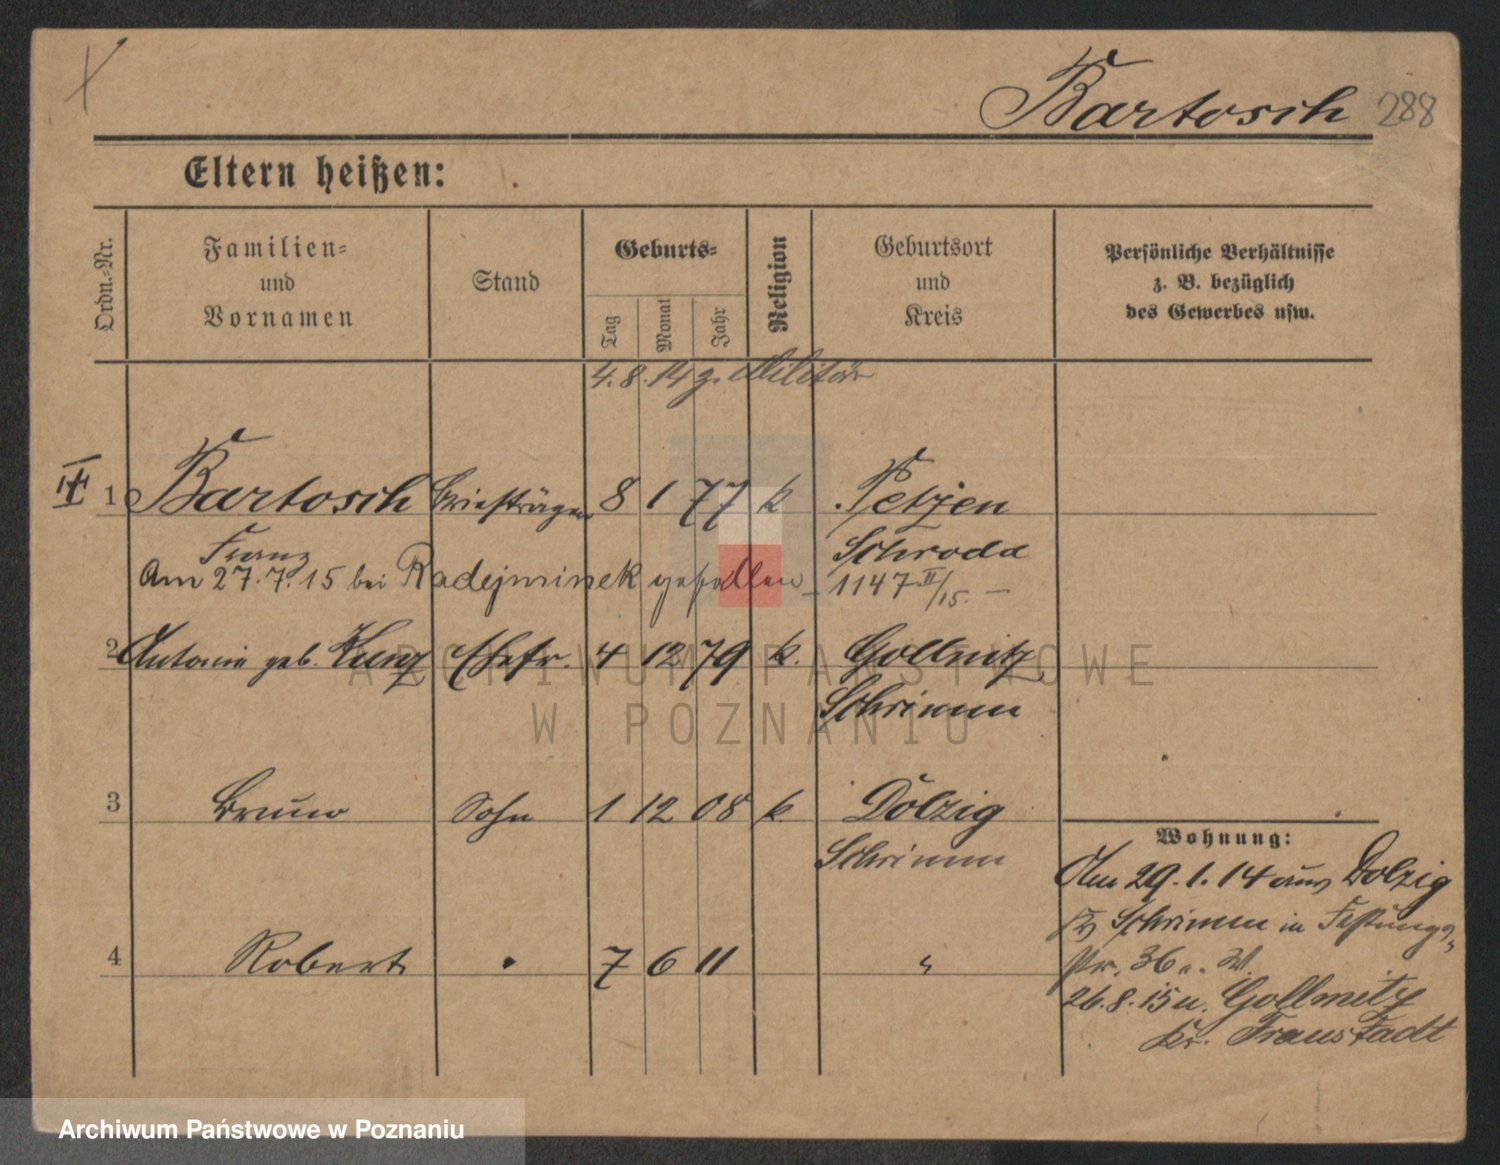 Bartosch 288
Eltern heißen:
Ordn.-Nr.
Familien-
und
Vornamen
Stand
Geburts-
Tag
Monat
Jahr
Religion
Geburtsort
und
Kreis
Persönliche Verhältnisse
z. B. bezüglich
des Gewerbes usw.
4.8.14 z. Militär
1 Bartosch Briefträger 8 1 77 k Petzen
Franz Schroda
Am 27.7.15 bei Radejminek gefallen – 1147 II/15. –
2 Antonie geb. Kunz Ehefr. 4 12 79 k. Gollnitz
Schrimm
3 Bruno Sohn 1 12 08 k. Dolzig
Schrimm
4 Robert " 7 6 11 "
Wohnung:
Am 29.1.14 aus Dolzig
Kr Schrimm in Festungs-
Str. 36
26.8.15 n. Gollmitz
Kr. Fraustadt
ARCHIWUM PAŃSTWOWE
W POZNANIU
Archiwum Państwowe w Poznaniu